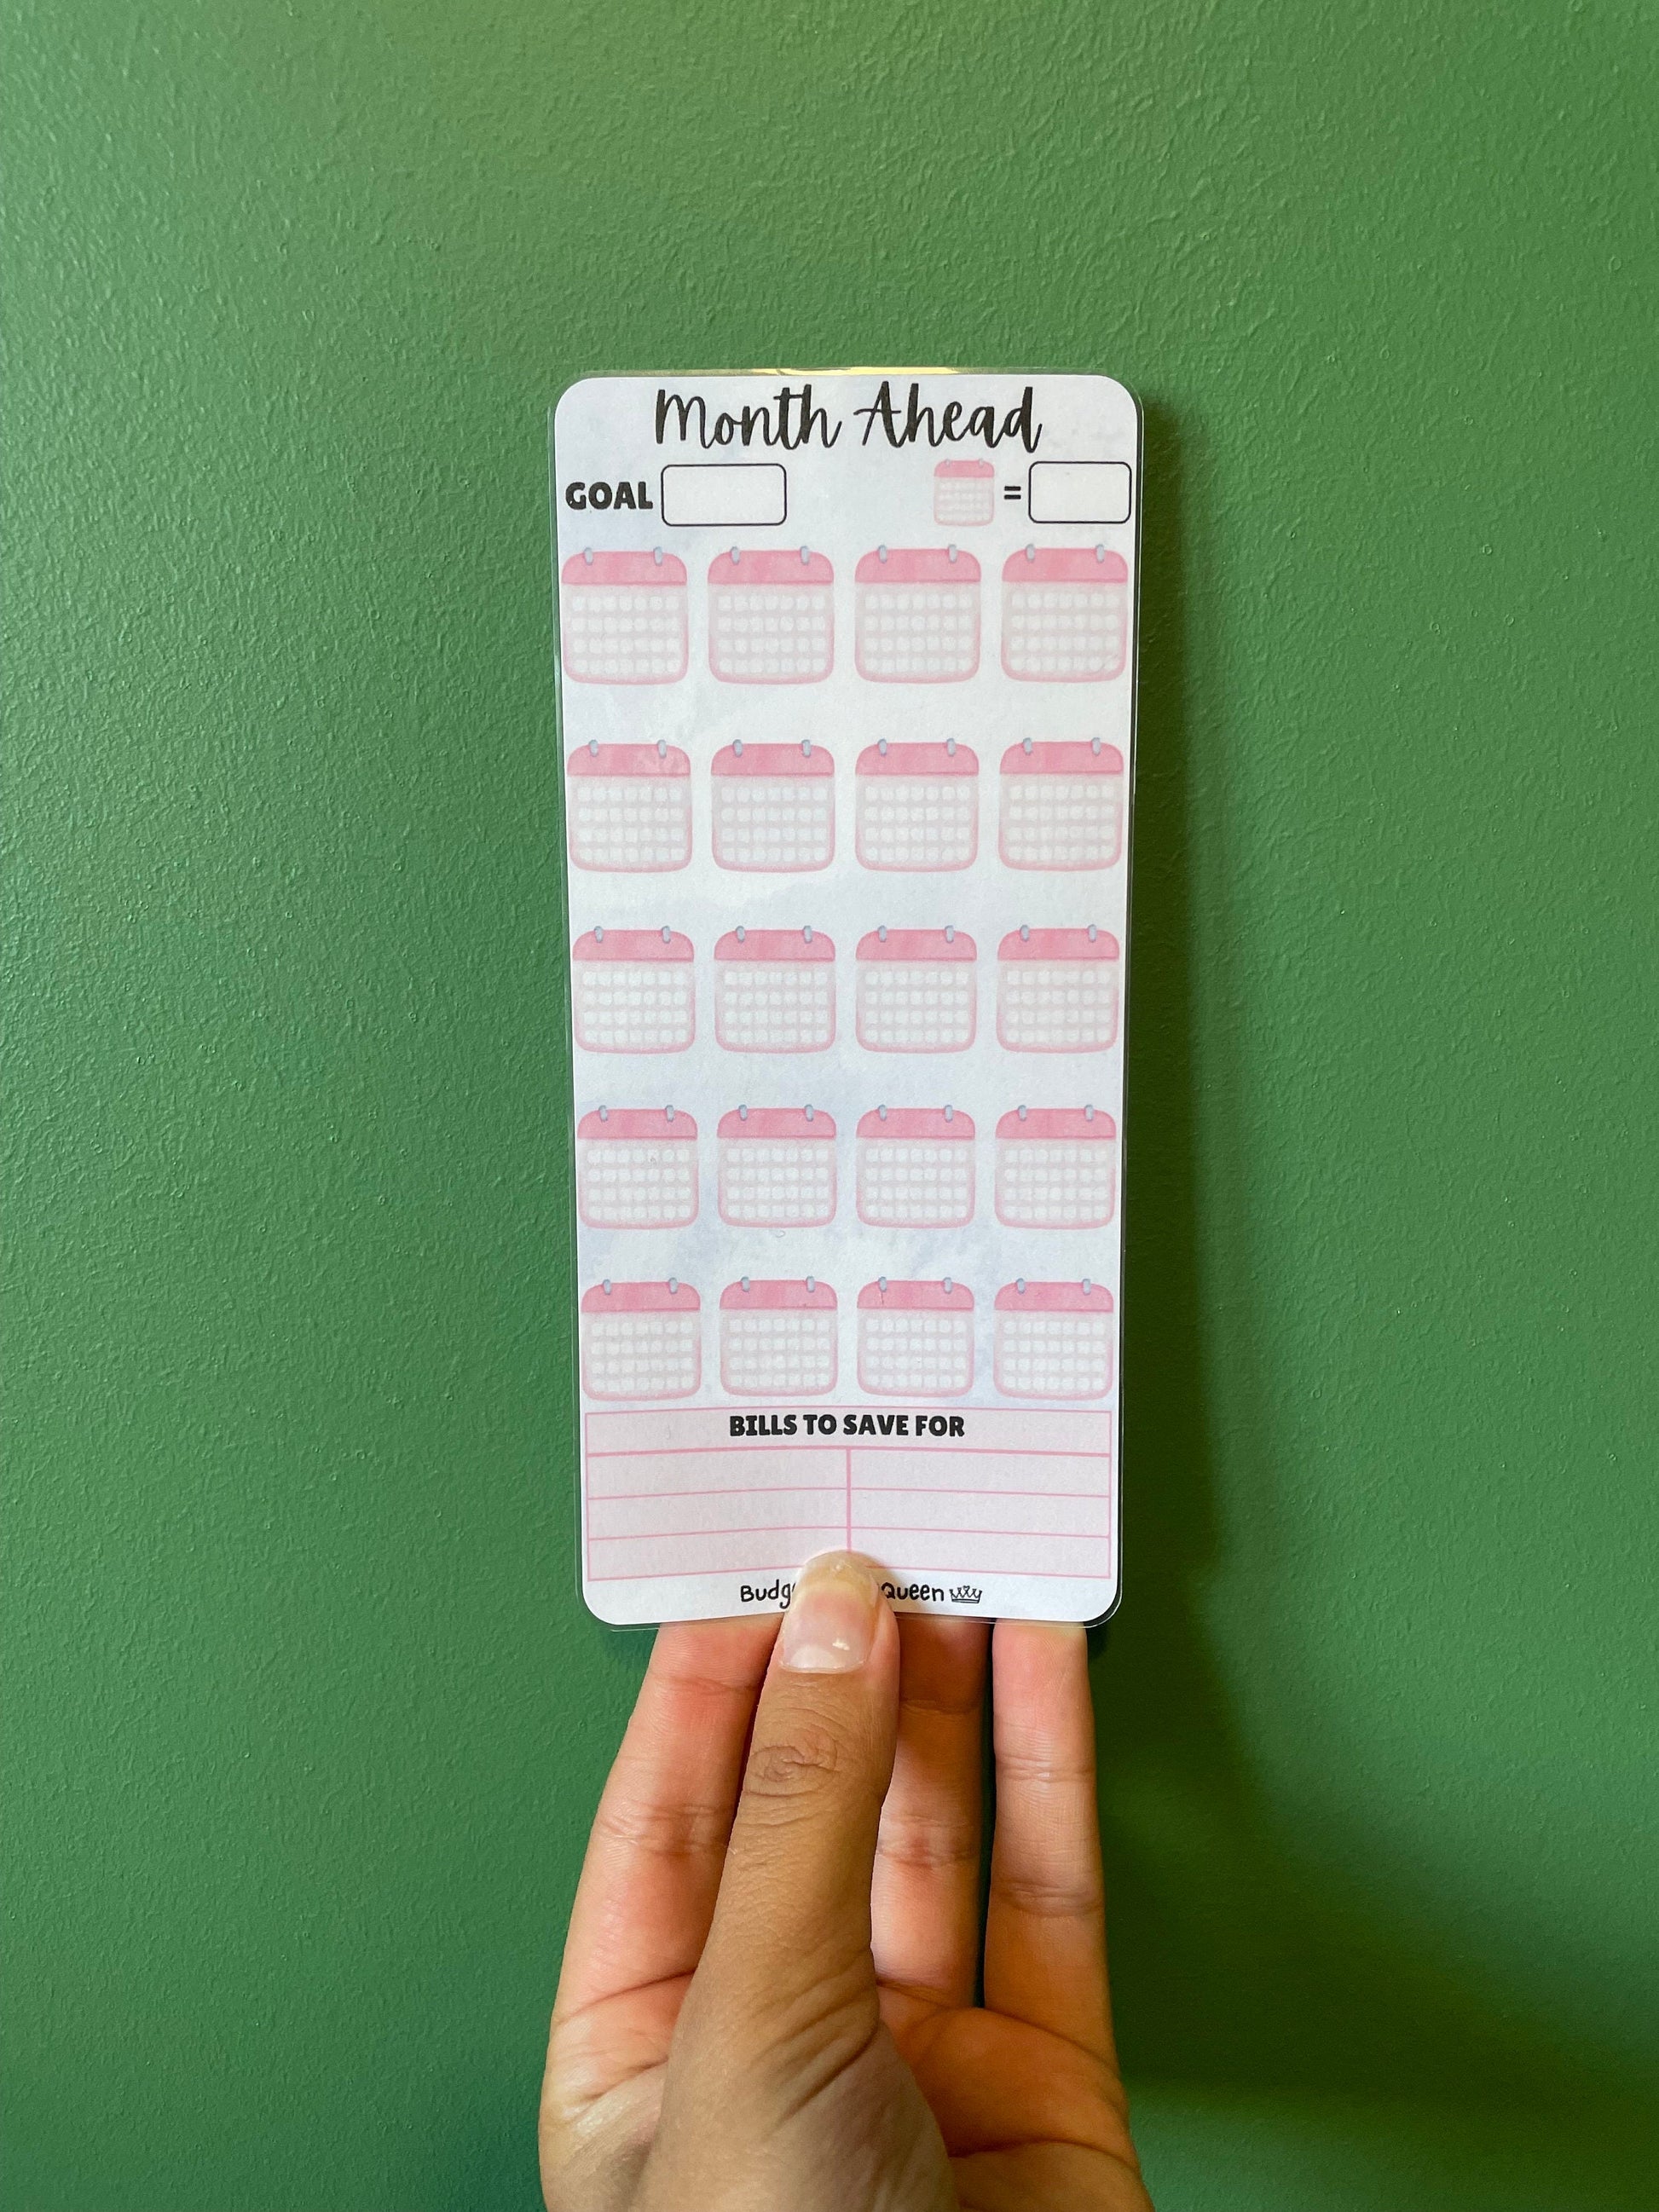 Month Ahead
GOAL =
BILLS TO SAVE FOR
Queen